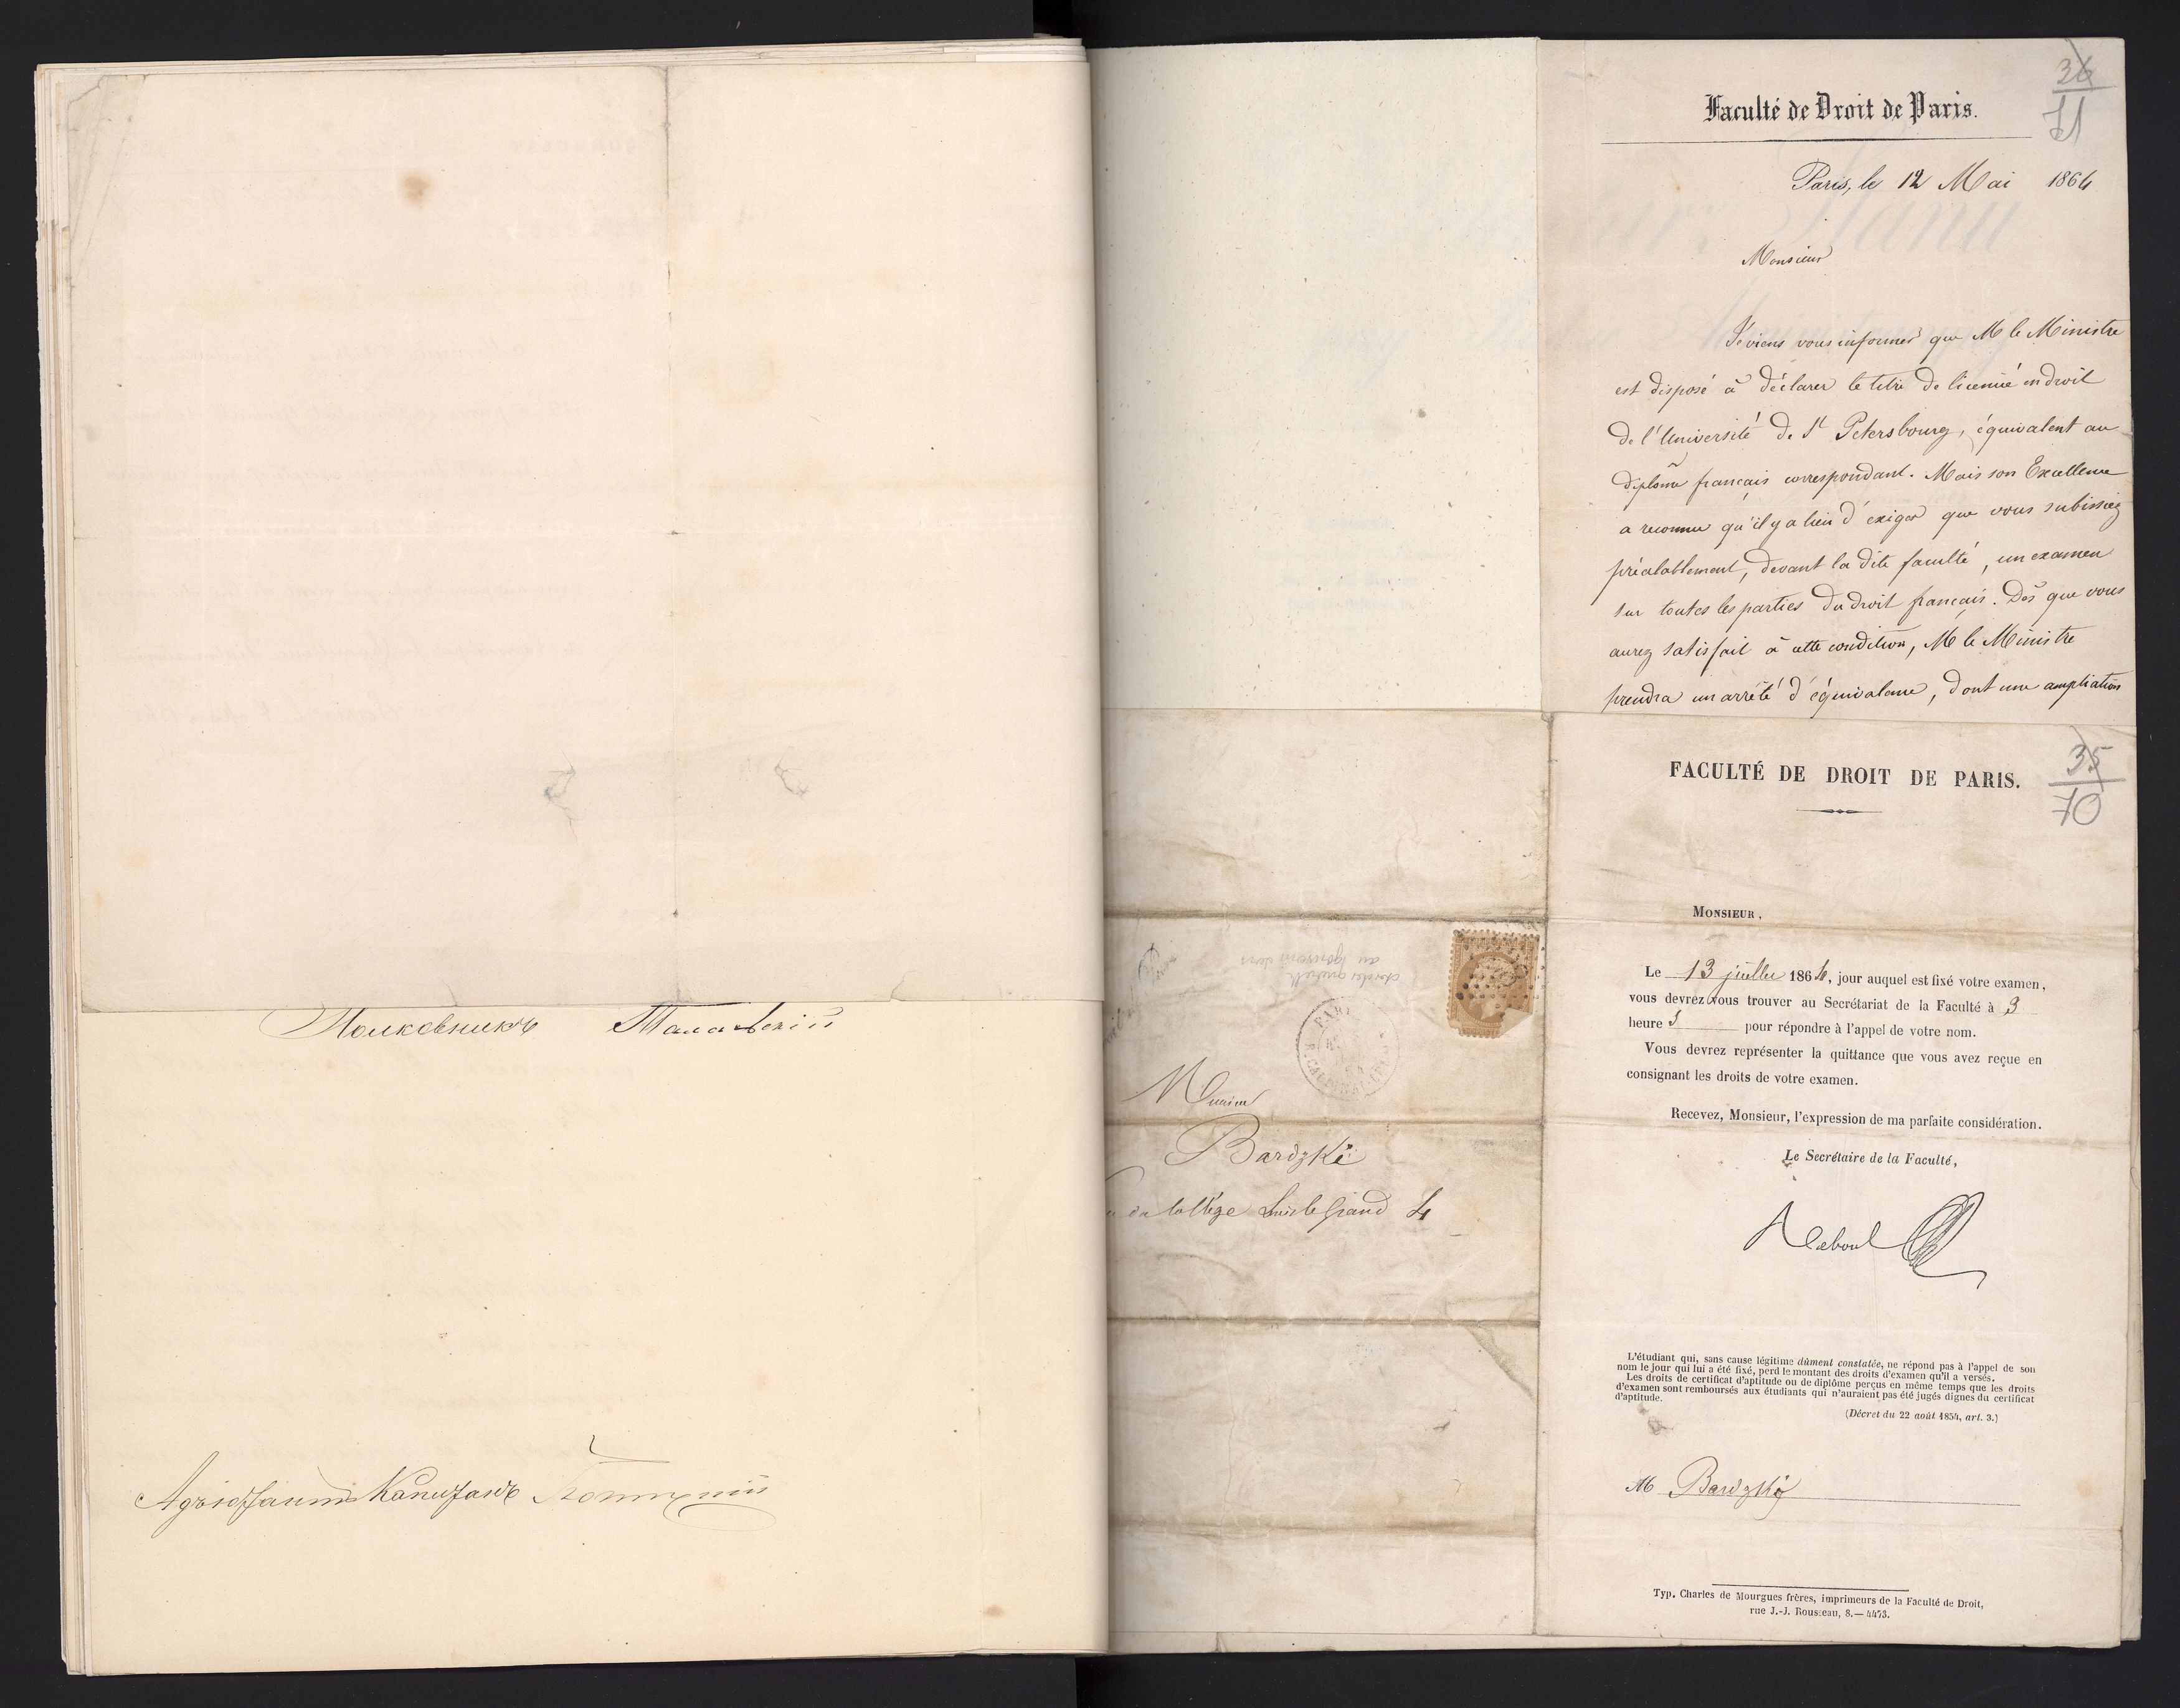 Полковникъ
Адъютантъ Капитанъ
36
71
Faculté de Droit de Paris.
Paris, le 12 Mai 1864
Monsieur
Je viens vous informer que M le Ministre
est disposé à déclarer le titre de licencié en droit
de l'Université de St Petersbourg, équivalent au
diplôme français correspondant. Mais son Excellence
a reconnu qu'il y a lieu d'exiger que vous subissiez
préalablement, devant la dite faculté, un examen
sur toutes les parties du droit français. Dès que vous
aurez satisfait à cette condition, M le Ministre
prendra un arrêté d'équivalence, dont une ampliation
Monsieur
Bardzki
du collège Louis le Grand 4
35
70
FACULTÉ DE DROIT DE PARIS.
MONSIEUR,
Le 13 juillet 1864, jour auquel est fixé votre examen,
vous devrez vous trouver au Secrétariat de la Faculté à 3
heure s pour répondre à l'appel de votre nom.
Vous devrez représenter la quittance que vous avez reçue en
consignant les droits de votre examen.
Recevez, Monsieur, l'expression de ma parfaite considération.
Le Secrétaire de la Faculté,
L'étudiant qui, sans cause légitime dûment constatée, ne répond pas à l'appel de son
nom le jour qui lui a été fixé, perd le montant des droits d'examen qu'il a versés.
Les droits de certificat d'aptitude ou de diplôme perçus en même temps que les droits
d'examen sont remboursés aux étudiants qui n'auraient pas été jugés dignes du certificat
d'aptitude.
(Décret du 22 août 1854, art. 3.)
M Bardzki
Typ. Charles de Mourgues frères, imprimeurs de la Faculté de Droit,
rue J.-J. Rousseau, 8.— 4473.